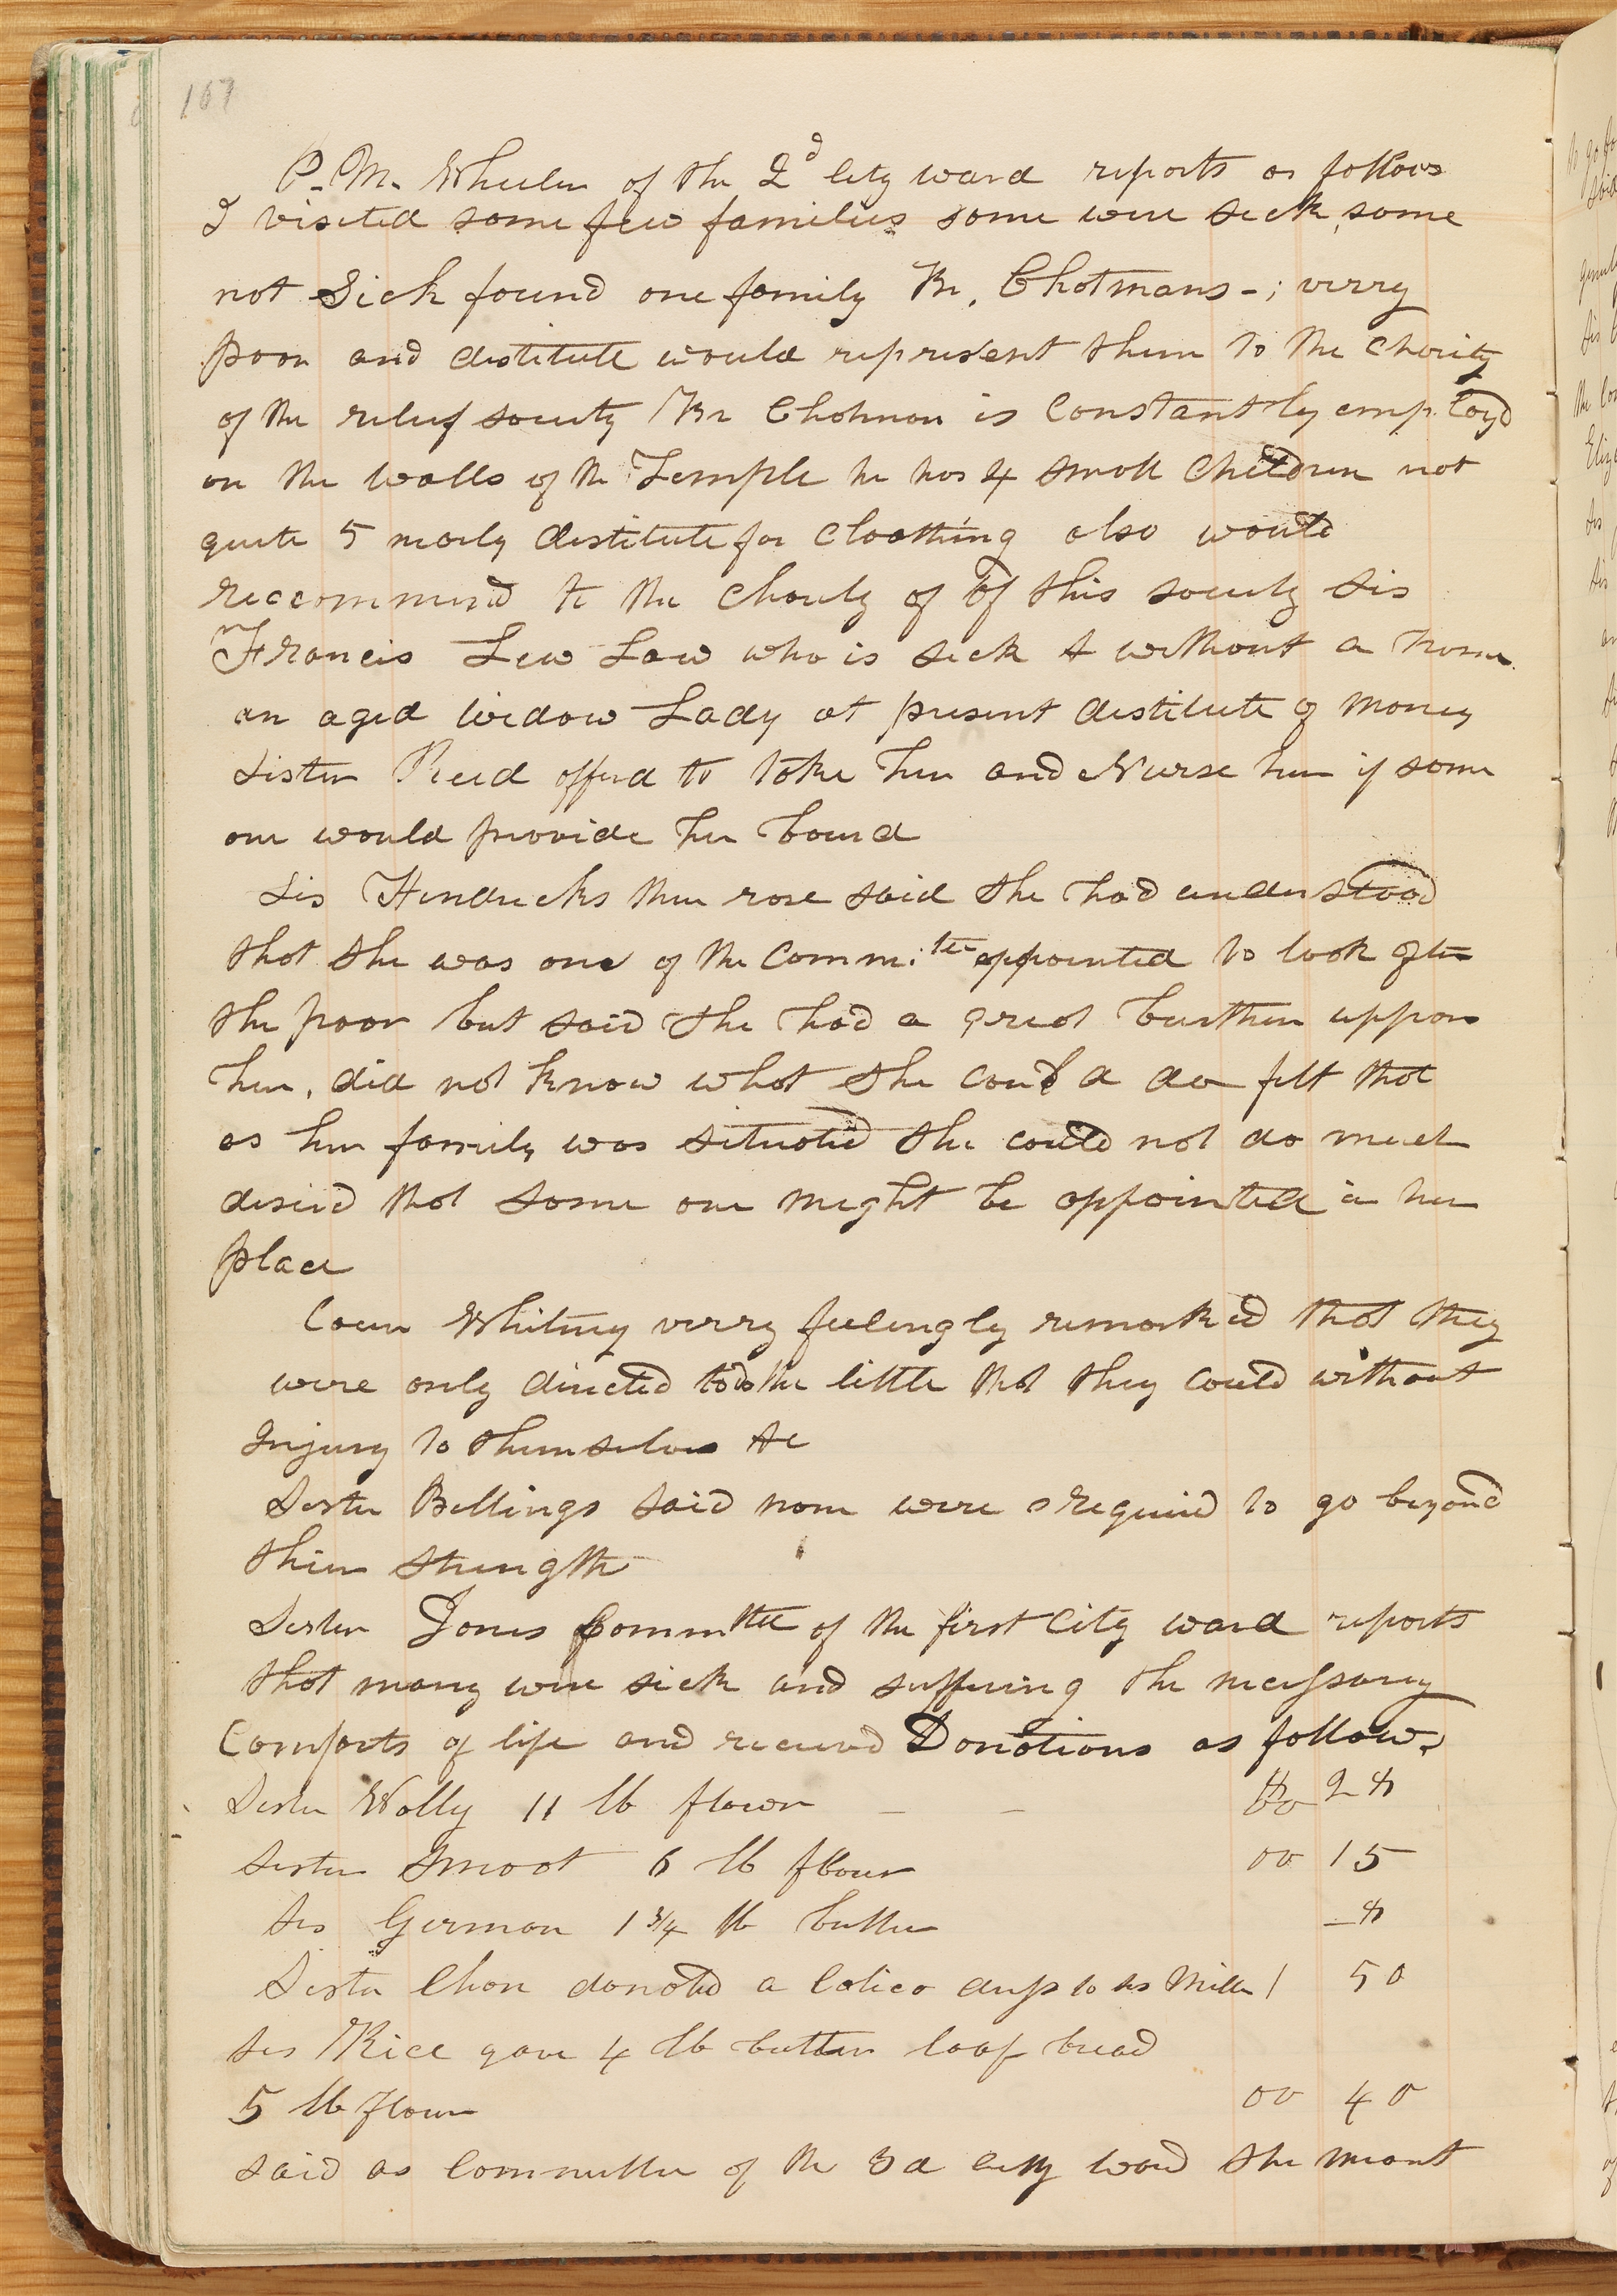 107
P. M. Wheeler of the 2d City ward reports as follows
I visited some few families some were sick, some
not Sick found one family Br. Chotmans -; verry
poor and destitute would represent them to the charity
of the relief society Br Chotman is Constantly employd
on the walls of the Temple he has 4 small Children not
quite 5 nearly destitute for cloathing also would
reccommend to the charity of of this society Sis
Francis Lew Law who is sick & without a home
an aged widow Lady at present destitute of money
Sister Reed offerd to take her and Nurse her if some
one would provide her board
Sis Hendricks then rose said she had understood
that she was one of the Comm.tee appointed to look after
the poor but said she had a great burthen uppon
her, did not know what she could do felt that
as her family was situated she could not do much
desired that some one might be appointed in her
place
Coun Whitney verry feelingly remarked that they
were only directed to do the little that they could without
Injury to themselves &c
Sister Billings said none were required to go beyond
thier strength
Sister Jones Committee of the first City ward reports
that many were sick and suffering the necessary
Comforts of life and received Donations as follows
Sister Wolly 11 lb flowr
Sister Smoot 6 lb flour 00 15
Sis German 1 3/4 lb butter
Sister Chase donated a Calico dress to sis Miller 1 50
Sis Rice gave 4 lb butter loaf bread
5 lb flour 00 40
said as committee of the 3d City ward she meant